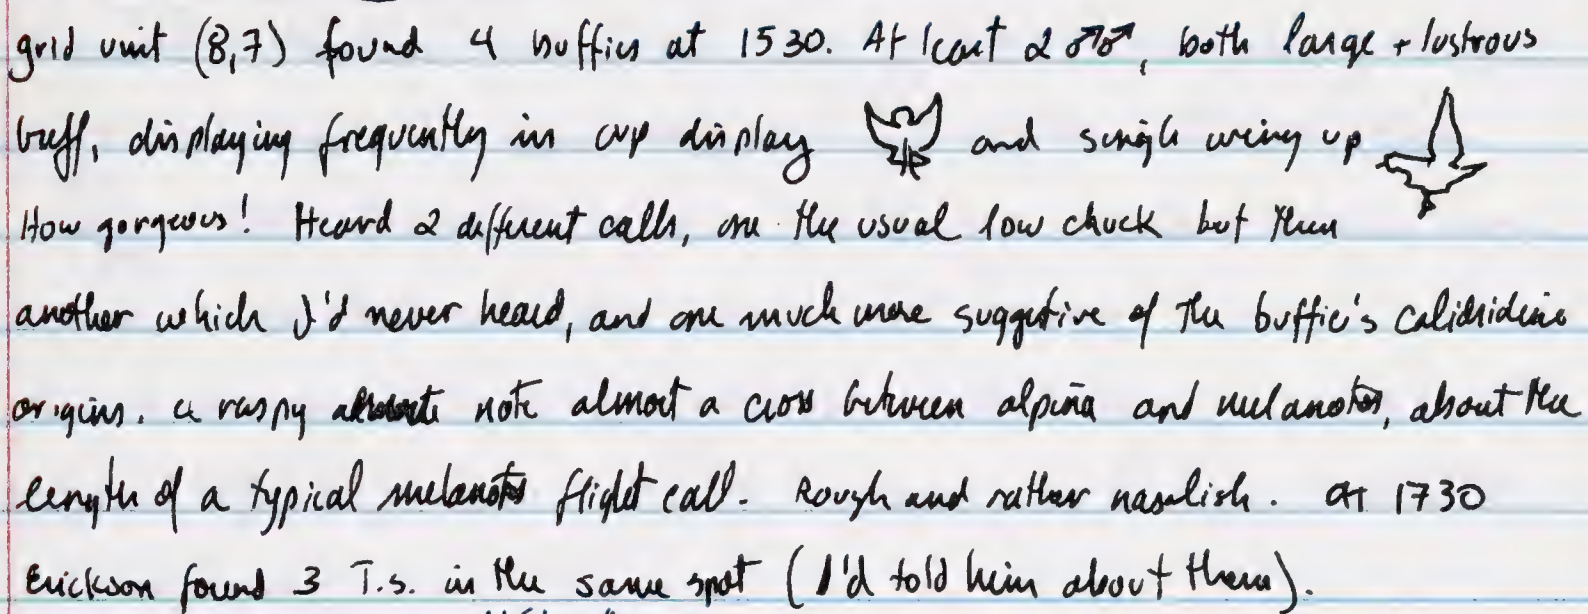 grid unit (8,7) found 4 buffies at 1530. At least 2 ♂♂, both large + lustrous
buff, displaying frequently in cup display and single wing up
How gorgeous! Heard 2 different calls, one the usual low chuck but then
another which I'd never heard, and one much more suggestive of the buffie's calidridine
origins. a raspy note almost a cross between alpina and melanotos, about the
length of a typical melanotos flight call. Rough and rather nasalish. At 1730
Erickson found 3 T.s. in the same spot (I'd told him about them).